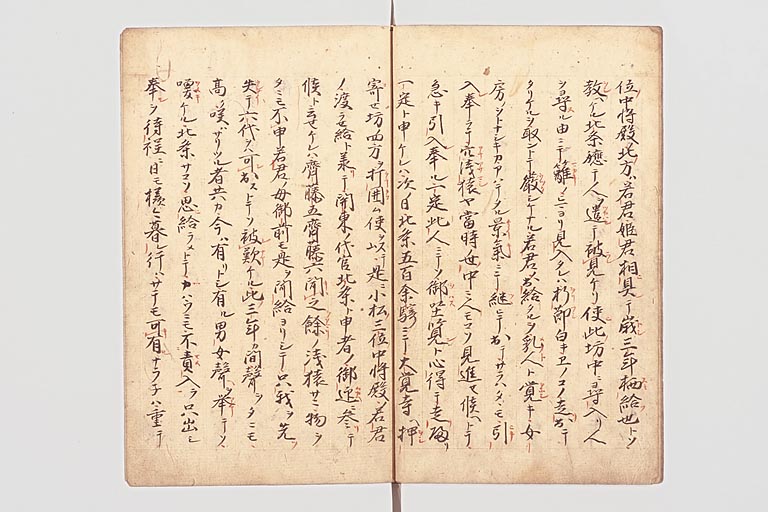 位中将殿北方若君姫君相具テ歳三年栖給也トソ
教ヘケル北条慥ニ人ヲ遣テ被見ケリ使此坊中ヲ尋入リ人
ヲ尋ル由ニテ籬ノヒマヨリ見入タレハ折節白キヱノコノ走出テ
タリケルヲ取ントテ厳シケナル若君ノ出給ケルヲ乳人ト覚キ女
房ノ シキカアハテタル景気ニテ継ヒテ出テサラハタニモ引
入奉ラテ穴浅猿ヤ當時世中ニ人モコソ見進セ候ヘトテ
急キ引入奉ル一定此人ニテソ御坐覧ト心得テ走歸リ
一定ト申ケレハ次日北条五百余騎ニテ大覚寺ヘ押
寄セ坊四方ヲ打囲ム使ヲ以テ是ニ小松三位中将殿ノ若君
ノ渡セ給ト承テ関東ノ代官北条ト申者ノ御迎ニ参ニテ
候ト云セケレハ齊藤五齊藤六聞之餘ノ浅猿サニ物ヲ
タニモ不申若君ノ母御前モ是ヲ聞給ヨリシテ只我ヲ先
失テ六代ヲ可出ストテソ被歎ケル此三年カ間聲ヲタニモ
高 咲ハサリツル者共カ今ハ有リトシ有ル男女聲ヲ挙テソ
喚ケル北条サコソ思給ラメトテ ハウニモ不責入ラ只出シ
奉ヲ待程ニ日モ様々暮レ行ハサテモ可有ナラネハ重テ